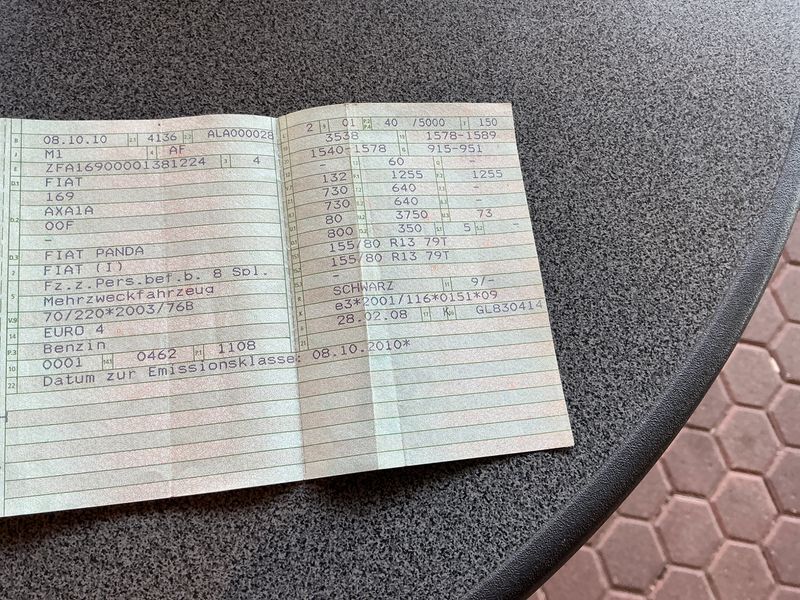 B 08.10.10 2.1 4136 2.2 ALA000028
J M1 4 AF
E ZFA16900001381224 3 4
D.1 FIAT
169
D.2 AXA1A
00F
-
D.3 FIAT PANDA
2 FIAT (I)
5 Fz.z.Pers.bef.b. 8 Spl.
Mehrzweckfahrzeug
V.9 70/220*2003/76B
14 EURO 4
P.3 Benzin
10 0001 14.1 0462 P.1 1108
22 Datum zur Emissionsklasse: 08.10.2010*
2 9 01 P.2 P.4 40 /5000 T 150
3538 18 1578-1589
1540-1578 G 915-951
- 60 -
132 1255 1255
730 640 -
730 640 -
80 3750 73
800 350 S.1 5 S.2 -
155/80 R13 79T
155/80 R13 79T
-
R SCHWARZ 11 9/-
K e3*2001/116*0151*09
6 28.02.08 17 K 16 GL830414
21